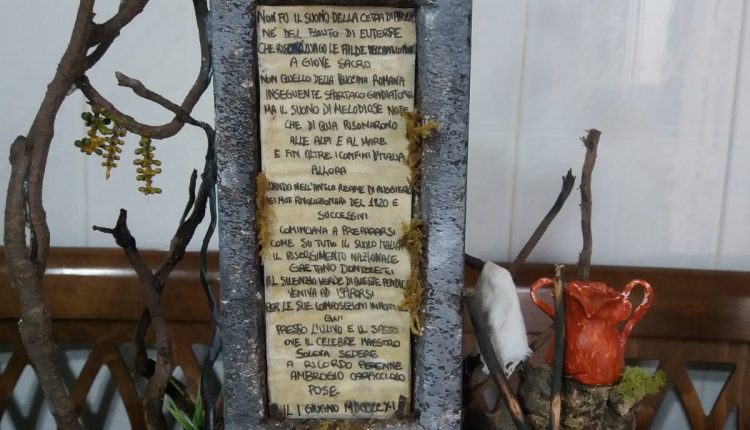 NON FU IL SUONO DELLA CETRA D'APOLLO
NE' DEL FLAUTO DI EUTERPE
CHE RISUONÒ LUNGO LE FALDE DELL'ANTICO MONTE
A GIOVE SACRO
NON QUELLO DELLA BUCCINA ROMANA
INSEGUENTE SPARTACO GLADIATORE
MA IL SUONO DI MELODIOSE NOTE
CHE DI QUA RISONARONO
ALLE ALPI E AL MARE
E FIN OLTRE I CONFINI D'ITALIA
ALLORA
QUANDO NELL'ANTICO REAME DI RUGGIERO
NEI MOTI RIVOLUZIONARI DEL 1820 E
SUCCESSIVI
COMINCIAVA A PREPARARSI
COME SU TUTTO IL SUOLO ITALIA
IL RISORGIMENTO NAZIONALE
GAETANO DONIZZETTI
AL SILENZIO VERDE DI QUESTE PENDICI
VENIVA AD ISPIRARSI
PER LE SUE COMPOSIZIONI IMMORTALI
QUI
PRESTO L'ULIVO E IL SASSO
OVE IL CELEBRE MAESTRO
SOLEVA SEDERE
A RICORDO PERENNE
AMBROGIO CARACCIOLO
POSE
IL I GIUGNO MDCCCLXI